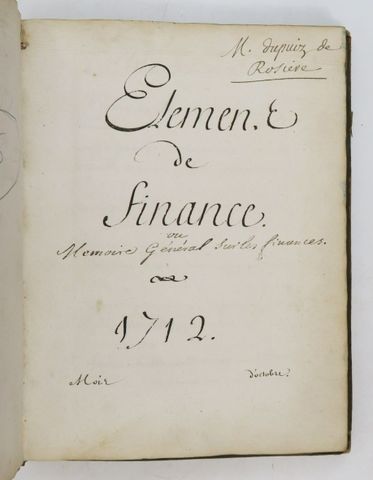 M. dupuiz de
Rosiere
Element
de
finance.
ou
Memoire Général sur les finances.
1712.
Mois d'octobre